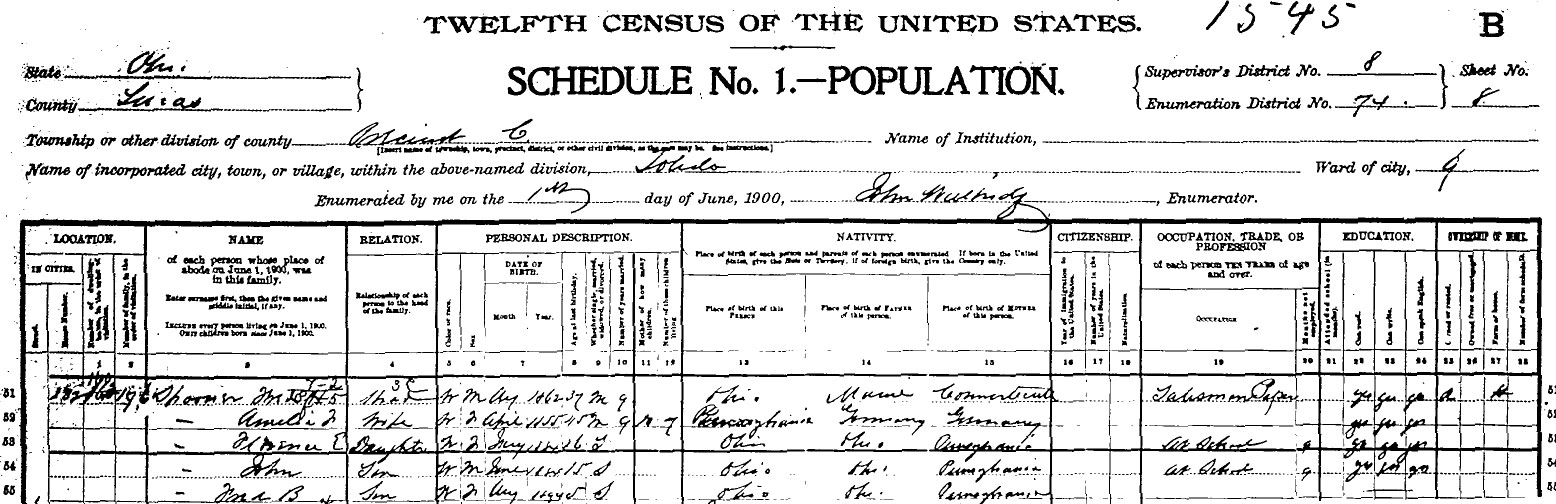 TWELFTH CENSUS OF THE UNITED STATES.
1545
B
State Ohi.
County Lucas
SCHEDULE No. 1.—POPULATION.
Supervisor's District No. 8
Enumeration District No. 74.
Sheet No.
8
Township or other division of county Precinct C
[Insert name of township, town, precinct, district, or other civil division, as the case may be. See instructions.]
Name of Institution,
Name of incorporated city, town, or village, within the above-named division, Toledo
Ward of city, 9
Enumerated by me on the 1st day of June, 1900, John , Enumerator.
LOCATION.
IN CITIES.
Street.
House Number.
Number of family, in the order of visitation.
NAME
of each person whose place of abode on June 1, 1900, was in this family.
Enter surname first, then the given name and middle initial, if any.
INCLUDE every person living on June 1, 1900.
OMIT children born since June 1, 1900.
RELATION.
Relationship of each person to the head of the family.
PERSONAL DESCRIPTION.
Color or race.
Sex.
DATE OF BIRTH.
Month
Year.
Age at last birthday.
Whether single, married, widowed, or divorced.
Number of years married.
Mother of how many children.
Number of these children living
NATIVITY.
Place of birth of each person and parents of each person enumerated. If born in the United States, give the State or Territory; if of foreign birth, give the Country only.
Place of birth of this PERSON
Place of birth of FATHER of this person.
Place of birth of MOTHER of this person.
CITIZENSHIP.
Year of immigration to the United States.
Number of years in the United States.
Naturalization.
OCCUPATION, TRADE, OR PROFESSION
of each person TEN YEARS of age and over.
OCCUPATION
Months not employed.
EDUCATION.
Attended school (in months).
Can read.
Can write.
Can speak English.
OWNERSHIP OF HOME.
Owned or rented.
Owned free or mortgaged.
Farm or house.
Number of farm schedule.
1 2 3 4 5 6 7 8 9 10 11 12 13 14 15 16 17 18 19 20 21 22 23 24 25 26 27 28
51 Spooner Head W M Aug 1862 37 M 9 Ohio Maine Connecticut Salesman Paper yes yes yes R H
52 — Amelia F Wife W F April 1855 45 M 9 7 Pennsylvania Germany Germany yes yes yes
53 — Florence E Daughter W F 16 S Ohio Ohio Pennsylvania At School 9 yes yes yes
54 — John Son W M June 15 S Ohio Ohio Pennsylvania At School 9 yes yes yes
55 — Fred B Son W M Aug 5 S Ohio Ohio Pennsylvania